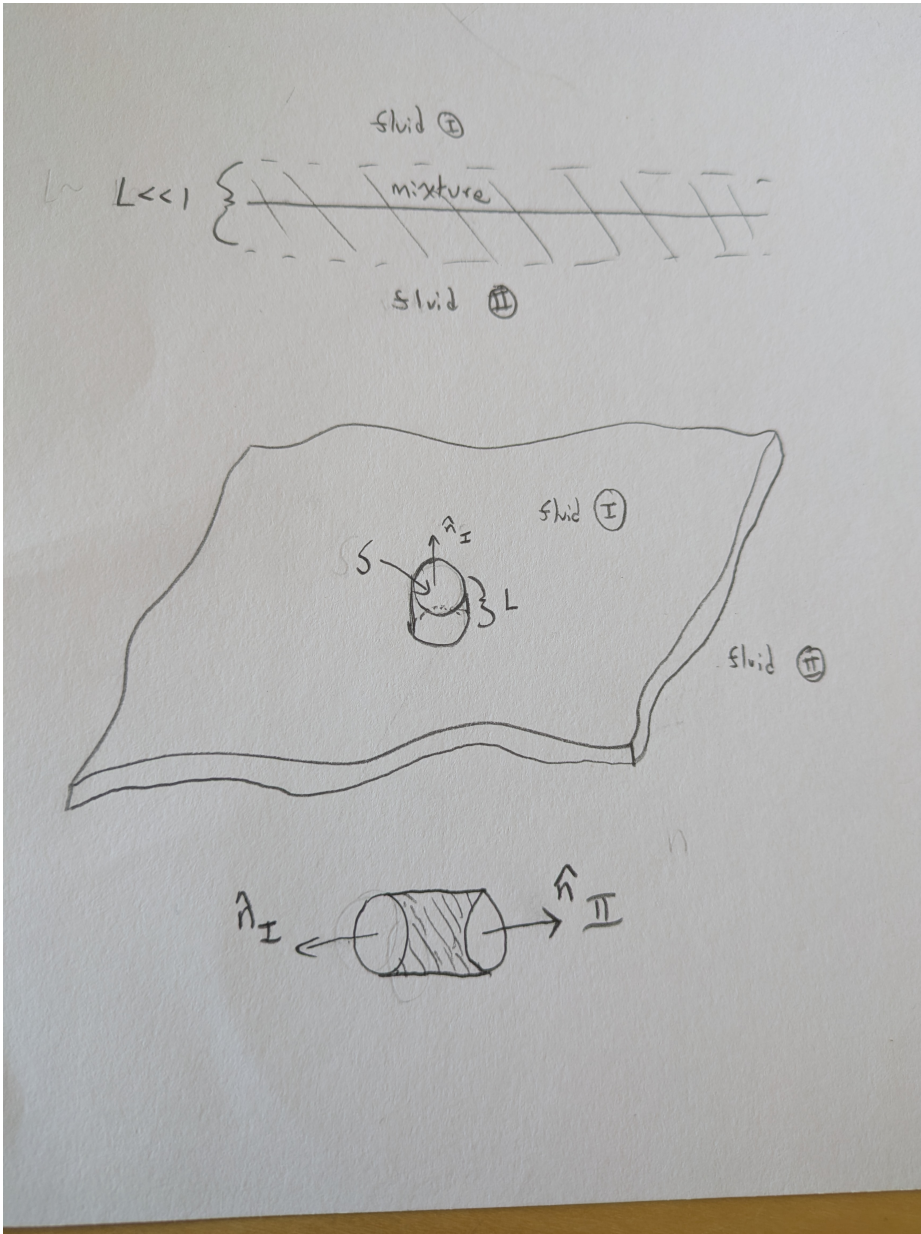 fluid Ⓘ
L<<1
mixture
fluid Ⓘ Ⓘ
fluid Ⓘ
n̂ I
S
L
fluid Ⓘ Ⓘ
n̂ I
n̂ II